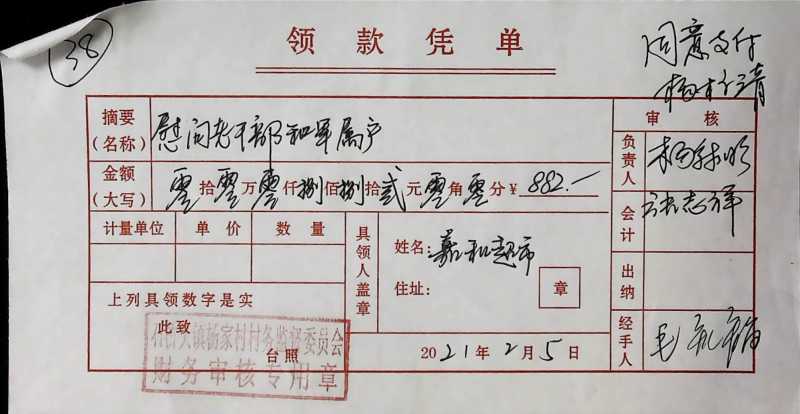 38
领款凭单
同意支付
摘要
(名称)
慰问老干部和军属户
审核
负责人
金额
(大写)
零拾零万零仟捌佰捌拾贰元零角零分¥ 882.—
会计
张志祥
计量单位 单价 数量
具领人盖章
姓名: 嘉和超市
住址:
章
出纳
上列具领数字是实
此致
台照
镇杨家村村务监督委员会
财务审核专用章
2021年2月5日
经手人